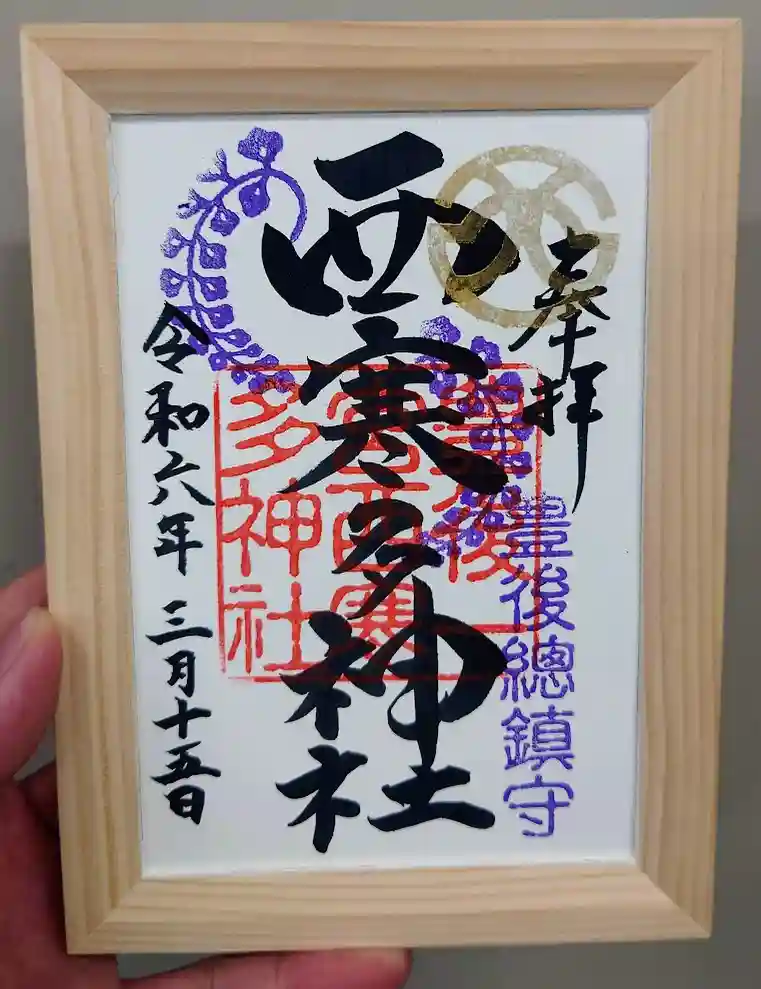 奉拝
豊後總鎮守
西寒多神社
豊後
一宮西寒
多神社
令和六年三月十五日